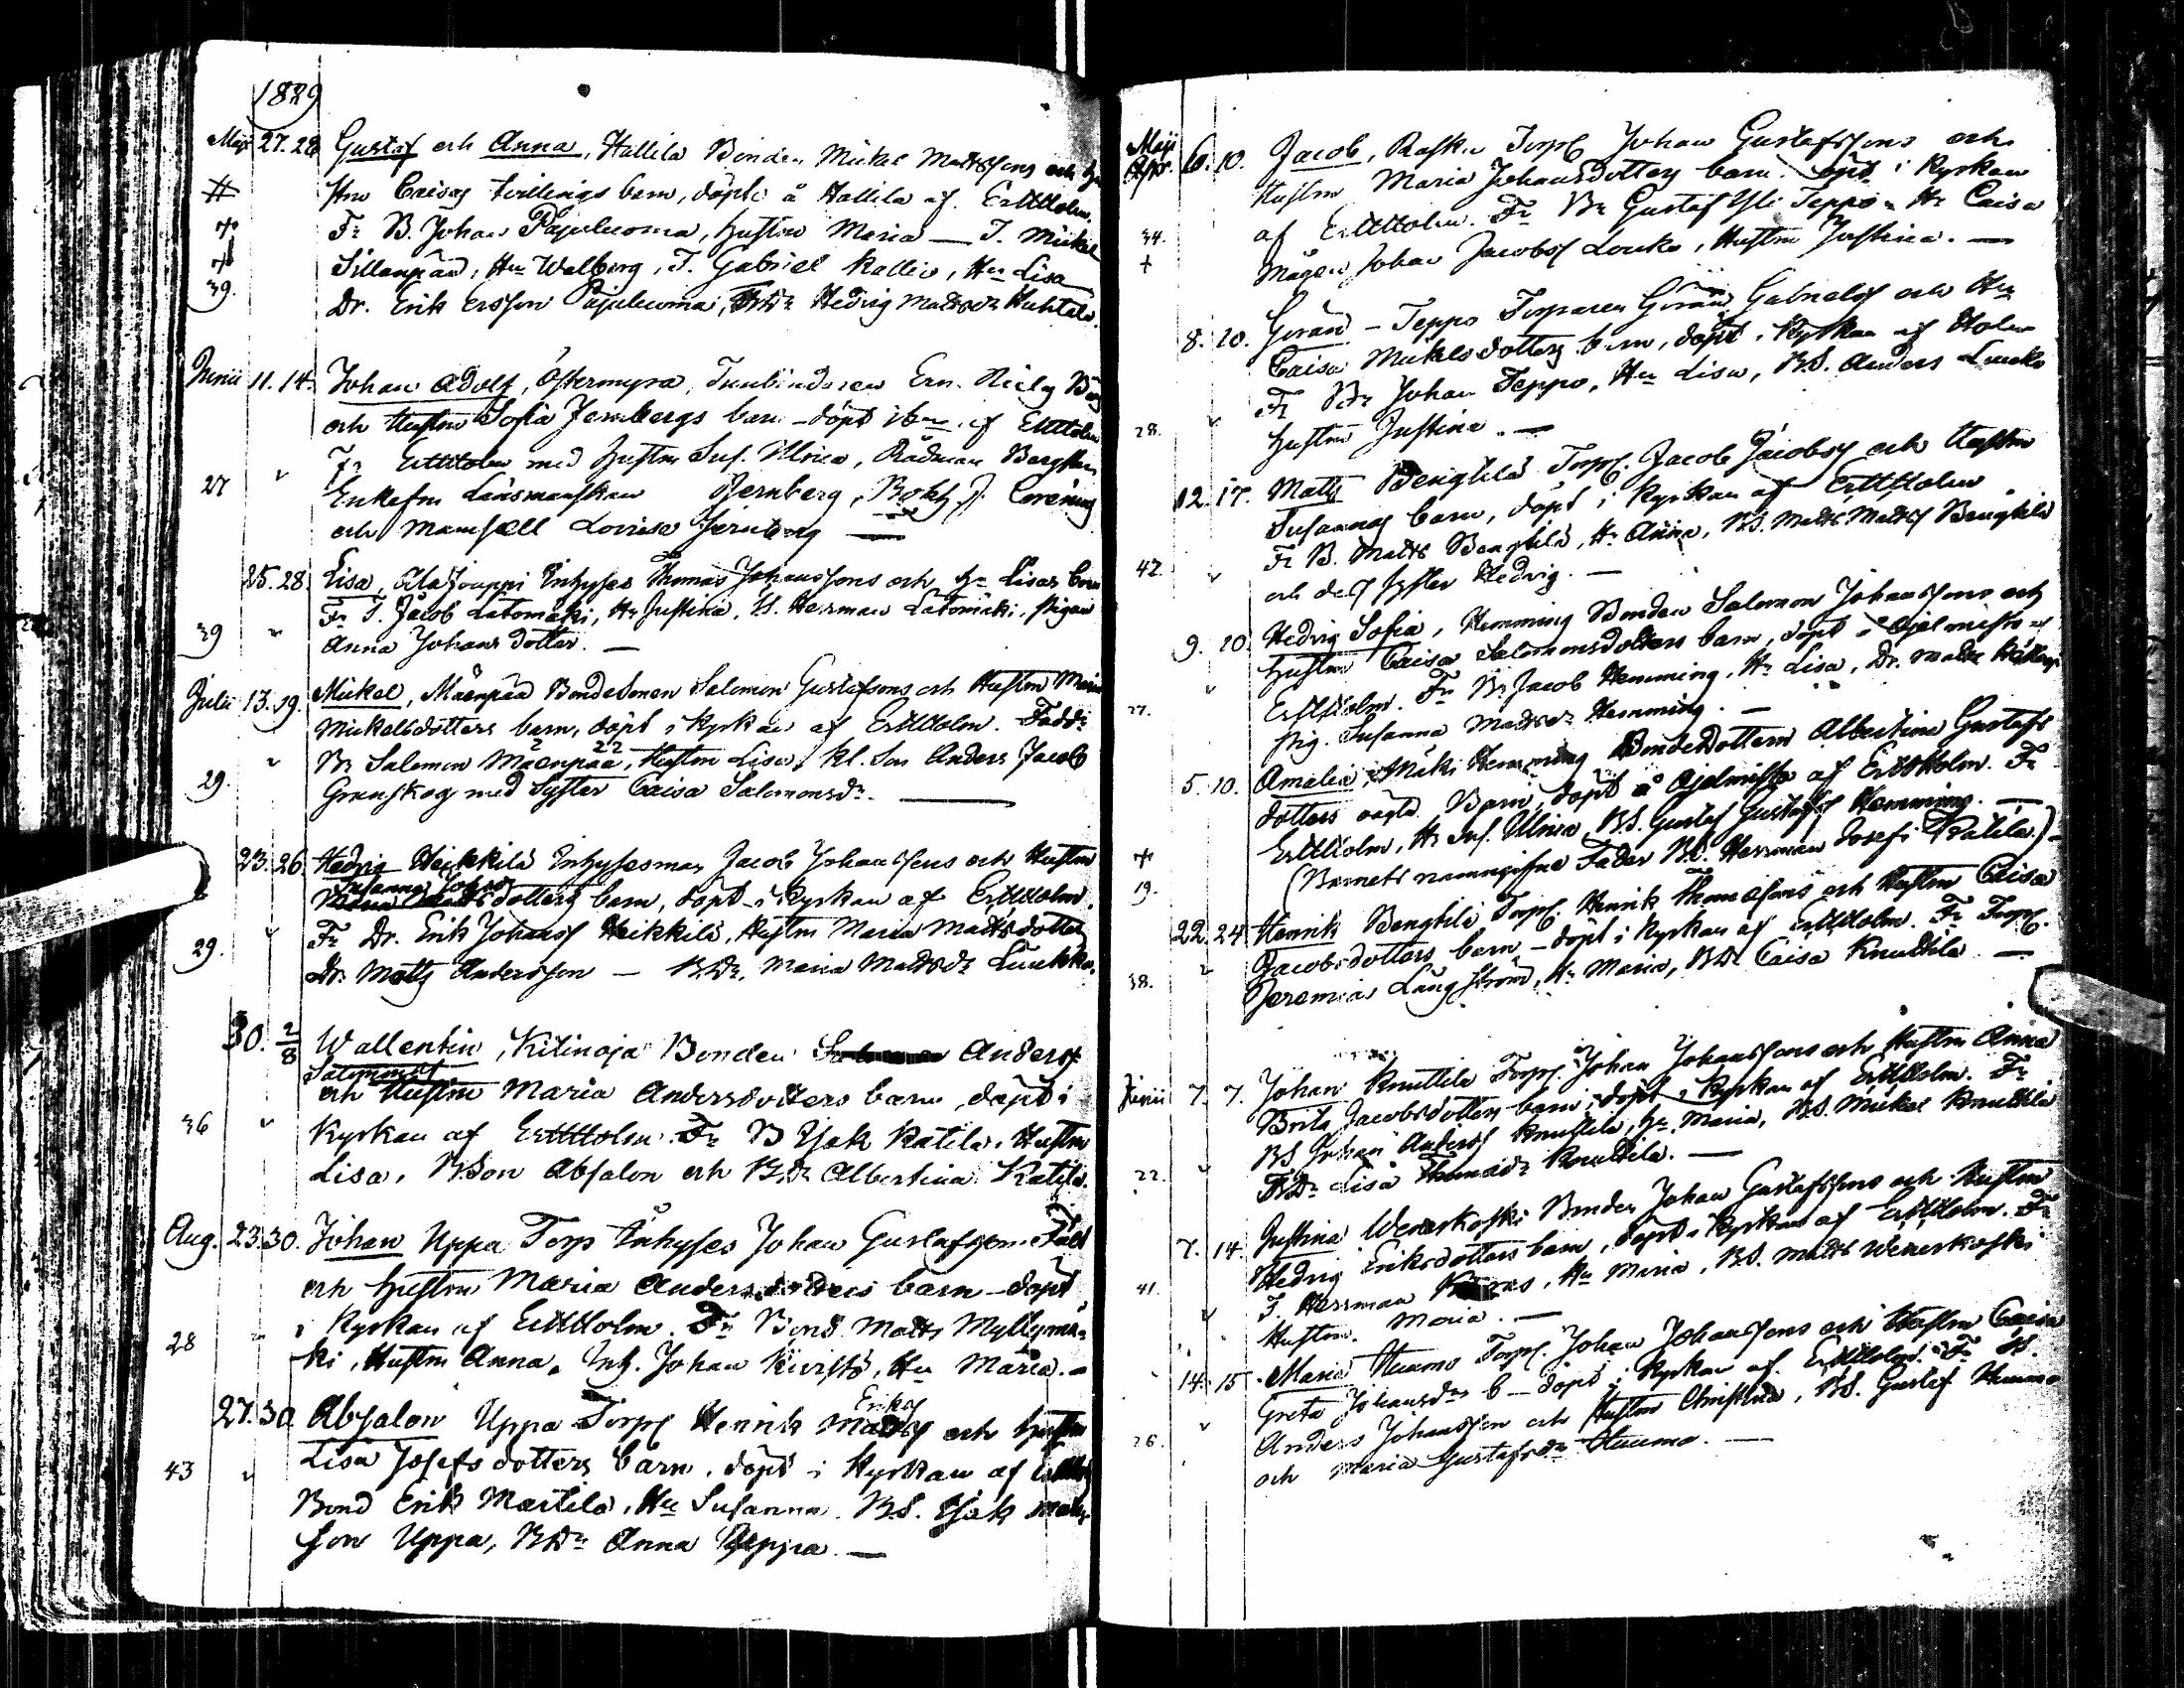 1829
Maji 27. 28 Gustaf och Anna, Hallila Bonden Mickel Mattssons och
Hru Caisas tvillings barn, döpte å Hallila af Erttholm.
Fr B. Johan Pajuluoma, hustru Maria — T. Mickel
Sillanpää, Hu Walborg, T. Gabriel Kallio, Hu Lisa
39. Dr. Erik Ersson Pajuluoma, BDr Hedvig Mattsdr Huhtala.
Junii 11. 14. Johan Adolf, Östermyra,
och Hustru Sofia Jernbergs barn — döpt af Erttholm
Fr Erttholm med hustru Ulrica, Rådman
27 Enkefru Länsmanskan Jernberg, Bokh. J.
och Mamsell Lovisa Jernberg —
25. 28. Lisa, Ala Jouppi Inhyses Thomas Johanssons och Hu Lisas barn
Fr T. Jacob Latomäki, Hu Justina, Herrman Latomäki, pigan
39 Anna Johans dotter. —
Julii 13. 19. Mickel, Mäenpää Bondesonen Salomon Gustafsons och Hustru Maria
Mickelsdotters barn, döpt i Kyrkan af Erttholm. Faddr
Br Salomon Mäenpää, Hustru Lisa, Kl. Son Anders Jacob
29. Granskog med Syster Caisa Salomonsdr. —
23. 26. Hedvig Heikkilä Inhysesman Jacob Johanssons och Hustru
Susanna Johans
dotters barn, döpt i Kyrkan af Erttholm.
Fr Dr. Erik Johanss Heikkilä, Hustru Maria Mattsdotter
29. Dr. Matts Andersson — BDr. Maria Mattsdr Luukko.
30. 2/8 Wallentin, Kitinoja Bonden Anderss
Salomonss
och Hustru Maria Andersdotters barn, döpt i
36 Kyrkan af Erttholm Fr B Isak Katila, Hustru
Lisa, BSon Absalon och BDr Albertina Katila.
Aug. 23. 30. Johan Uppa Torp Inhyses Johan Gustafsson
och hustru Maria Andersdotters barn — döpt
i Kyrkan af Erttholm. Fr Bond Matts Myllymä-
28 ki, Hustru Anna, Inh. Johan Kivistö, Hu Maria. —
Eriks
27. 30. Absalon Uppa Torp Henrik och hustru
Lisa Josefsdotters barn, döpt i Kyrkan af
43 Bond Erik Marttila, Hu Susanna. BS. Isak
son Uppa, BDr Anna Uppa —
Maji
Apr. 6. 10. Jacob, Torp Johan Gustafssons och
Hustru Maria Johansdotters barn, döpt i Kyrkan
34. af Erttholm. Fr Br Gustaf Yli Teppo, Hr Caisa
Mågen Johan Jacobss Louko, Hustru Justina. —
8. 10. Göran — Teppo Torparen Göran Gabrielss och Hu
Caisa Mickelsdotters barn, döpt i Kyrkan af Holm
Fr Br Johan Teppo, Hu Lisa, BS. Anders Louko
28. hustru Justina. —
12. 17. Matts Benghtilä Torp. Jacob Jacobss och Hustru
Susannas barn, döpt i Kyrkan af Erttholm
Fr B. Matts Benghtilä, Hr Anna, BS. Matts Mattss Benghtilä
42. och dess syster Hedvig. —
9. 10 Hedvig Sofia, Hemming Bonden Salomon Johanssons och
hustru Caisa Salomonsdotters barn, döpt i
Erttholm. Fr Br Jacob Hemming, Hr Lisa, Dr. Matts
27. pig. Susanna Mattsdr Hemming. —
5. 10. Amalia, Mäki Hemming Bondedotters Albertina Gustafs
dotters oägta Barn, döpt å af Erttholm. Fr
Erttholm, Hr Ulrica, BS. Gustaf Gustafss Hemming. —
(Barnets namngifne Fader BS. Herrman Josefs Katila). —
19.
22. 24. Henrik Benghtilä Torp. Henrik Thomassons och Hustru Caisa
Jacobsdotters barn — döpt i Kyrkan af Erttholm. Fr Torp.
38. Jeremias Långström, Hr Maria, BDr Caisa Knuttila —
Junii 7. 7. Johan Knuttila Torp. Johan Johanssons och Hustru Anna
Brita Jacobsdotters barn, döpt i Kyrkan af Erttholm. Fr
BS Johan Anderss Knuttila, Hu Maria, BS. Mickel Knuttila
22. BDr Lisa Knuttila. —
7. 14. Justina Weneskoski Bonden Johan Gustafssons och Hustru
Hedvig Eriksdotters barn, döpt i Kyrkan af Erttholm. Fr
41. T. Herrman Hu Maria, BS. Matts Weneskoski
Hustru Maria. —
14. 15 Maria Huumo Torp. Johan Johanssons och Hustru Caisa
Greta Johansdrs b — döpt i Kyrkan af Erttholm. Fr B.
26. Anders Johansson och Hustru Christina, BS. Gustaf Huumo
och Maria Gustafsdr Huumo. —